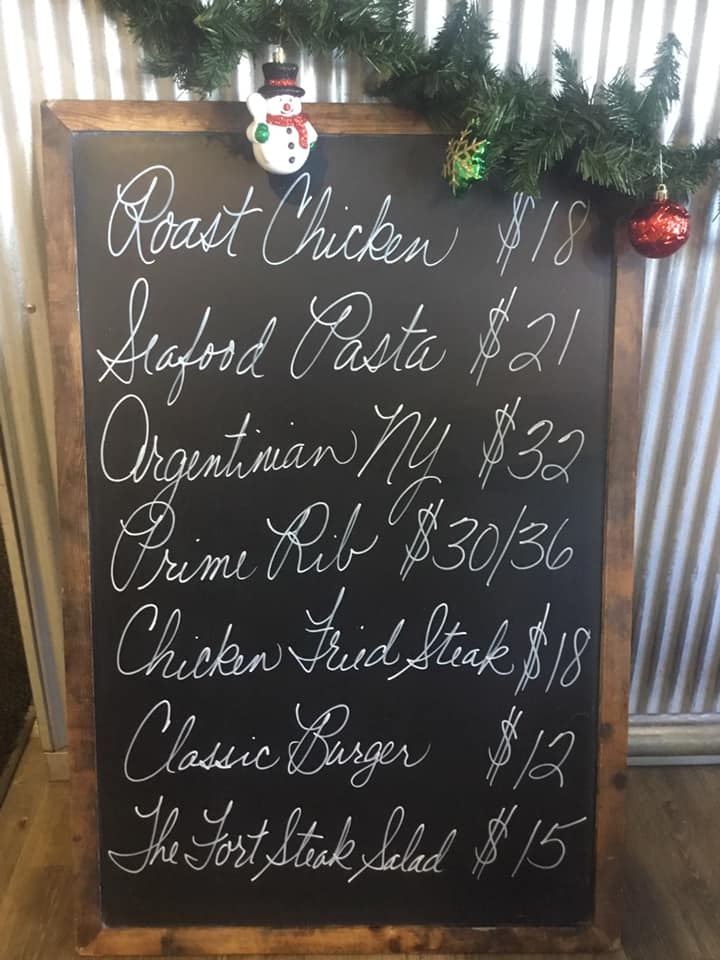 Roast Chicken $18
Seafood Pasta $21
Argentinian NY $32
Prime Rib $30/36
Chicken Fried Steak $18
Classic Burger $12
The Fort Steak Salad $15